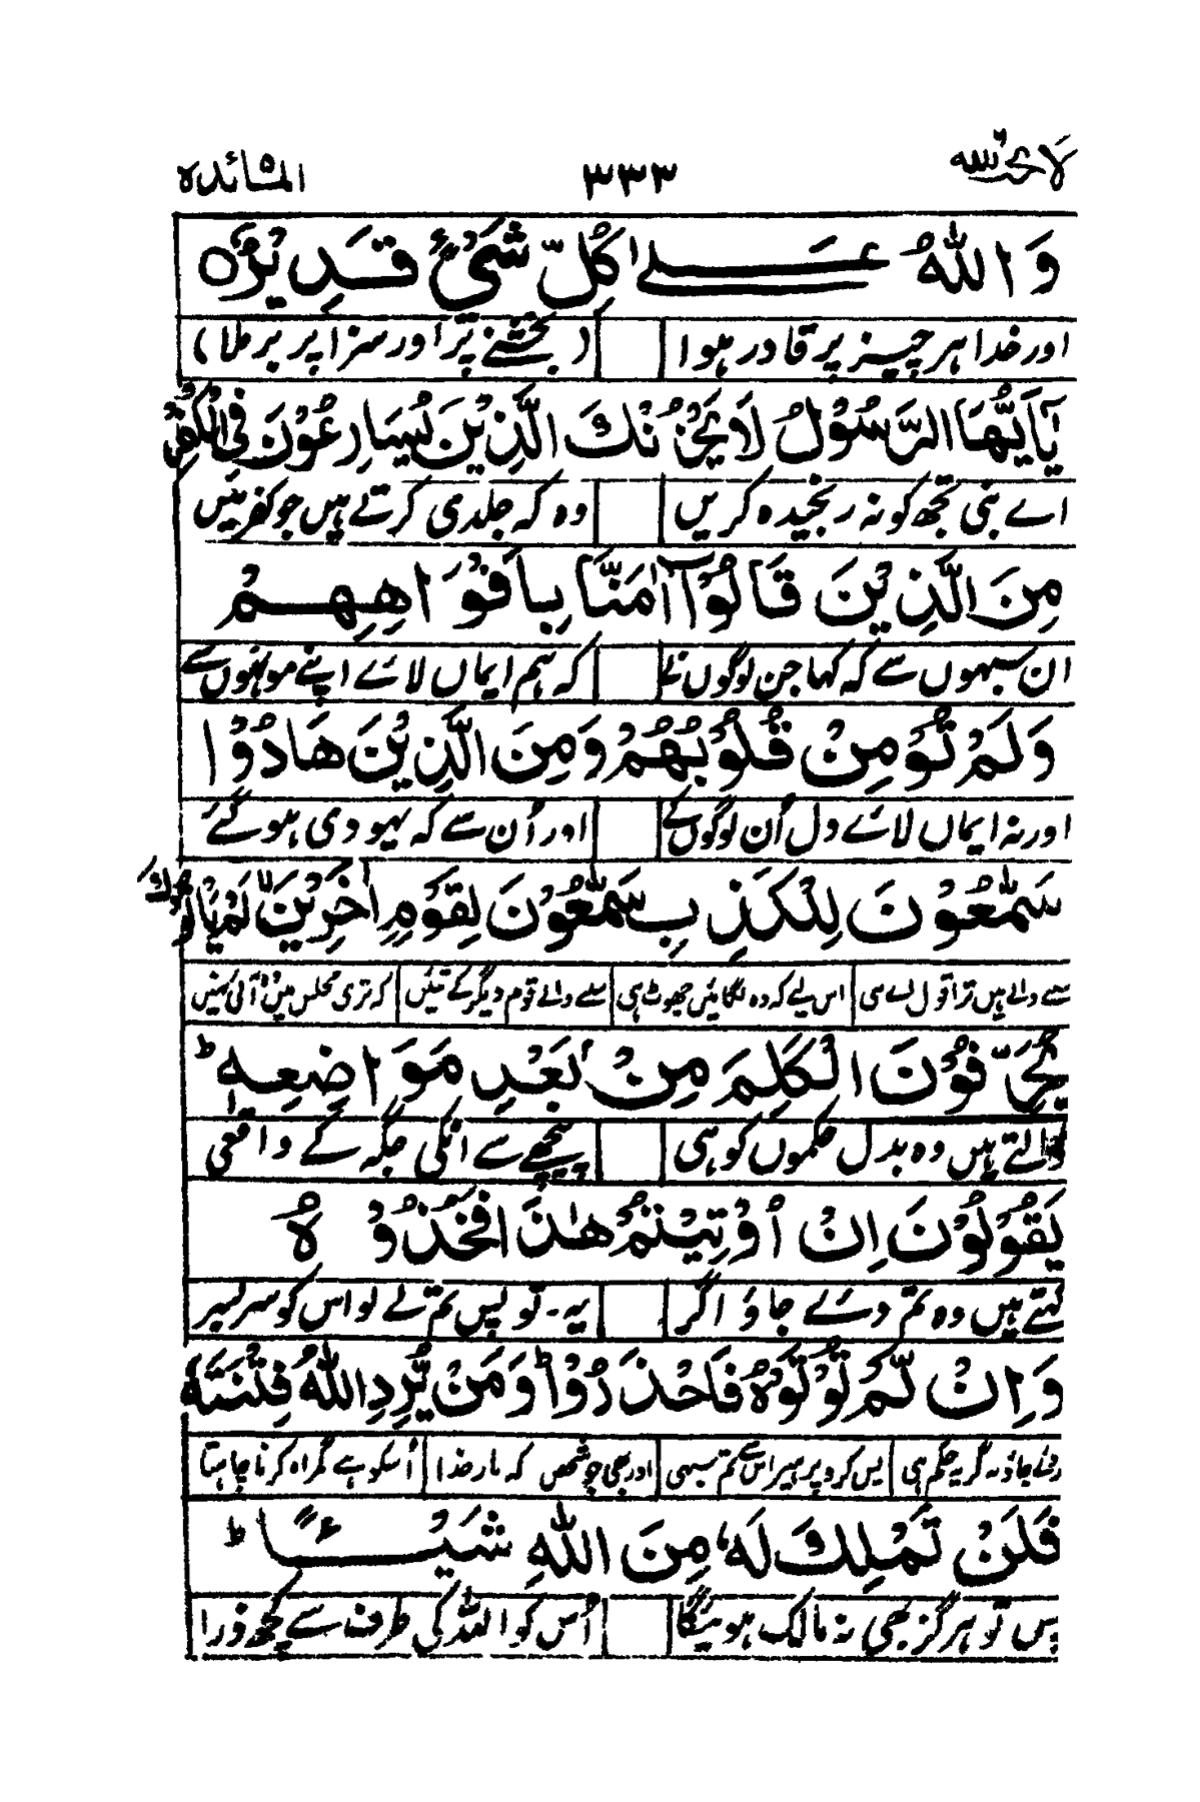 لا يحب الله ٣٣٣ المائدة
وَاللّٰهُ عَلٰى كُلِّ شَىْءٍ قَدِيْرٌ ○
اور خدا ہر چیز پر قادر ہوا (بخشنے پر اور سزا پر برملا)
يٰۤاَيُّهَا الرَّسُوْلُ لَا يَحْزُنْكَ الَّذِيْنَ يُسَارِعُوْنَ فِى الْكُفْرِ
اے نبی تجھ کو نہ رنجیدہ کریں وہ کہ جلدی کرتے ہیں جو کفر میں
مِنَ الَّذِيْنَ قَالُوْۤا اٰمَنَّا بِاَفْوَاهِهِمْ
ان سبھوں سے کہ کہا جن لوگوں نے کہ ہم ایماں لائے اپنے مونہوں سے
وَلَمْ تُؤْمِنْ قُلُوْبُهُمْ وَمِنَ الَّذِيْنَ هَادُوْا
اور نہ ایماں لائے دل اُن لوگوں کے اور اُن سے کہ یہودی ہو گئے
سَمّٰعُوْنَ لِلْكَذِبِ سَمّٰعُوْنَ لِقَوْمٍ اٰخَرِيْنَ لَمْ يَاْتُوْكَ
والے ہیں ترا قول اس لیے کہ وہ لگائیں جھوٹ ہی والے قوم دیگر کے تئیں کہ تری مجلس میں آئی نہیں
يُحَرِّفُوْنَ الْكَلِمَ مِنْۢ بَعْدِ مَوَاضِعِهٖ ؕ
ڈالتے ہیں وہ بدل حکموں کو ہی پیچھے سے انکی جگہ کے واقعی
يَقُوْلُوْنَ اِنْ اُوْتِيْتُمْ هٰذَا فَخُذُوْهُ
کہتے ہیں وہ تم دئے جاؤ اگر یہ ۔ تو پس تم لے لو اس کو سربسر
وَاِنْ لَّمْ تُؤْتَوْهُ فَاحْذَرُوْا ؕ وَمَنْ يُّرِدِ اللّٰهُ فِتْنَتَهٗ
دئے جاؤ نہ گر یہ حکم ہی پس کرو پرہیز اس سے تم سبھی اور بھی جو شخص کہ خدا اُسکو ہے گمراہ کرنا چاہتا
فَلَنْ تَمْلِكَ لَهٗ مِنَ اللّٰهِ شَيْـًٔا ؕ
پس تو ہرگز بھی نہ مالک ہوئیگا اُس کو اللہ کی طرف سے کچھ ذرا